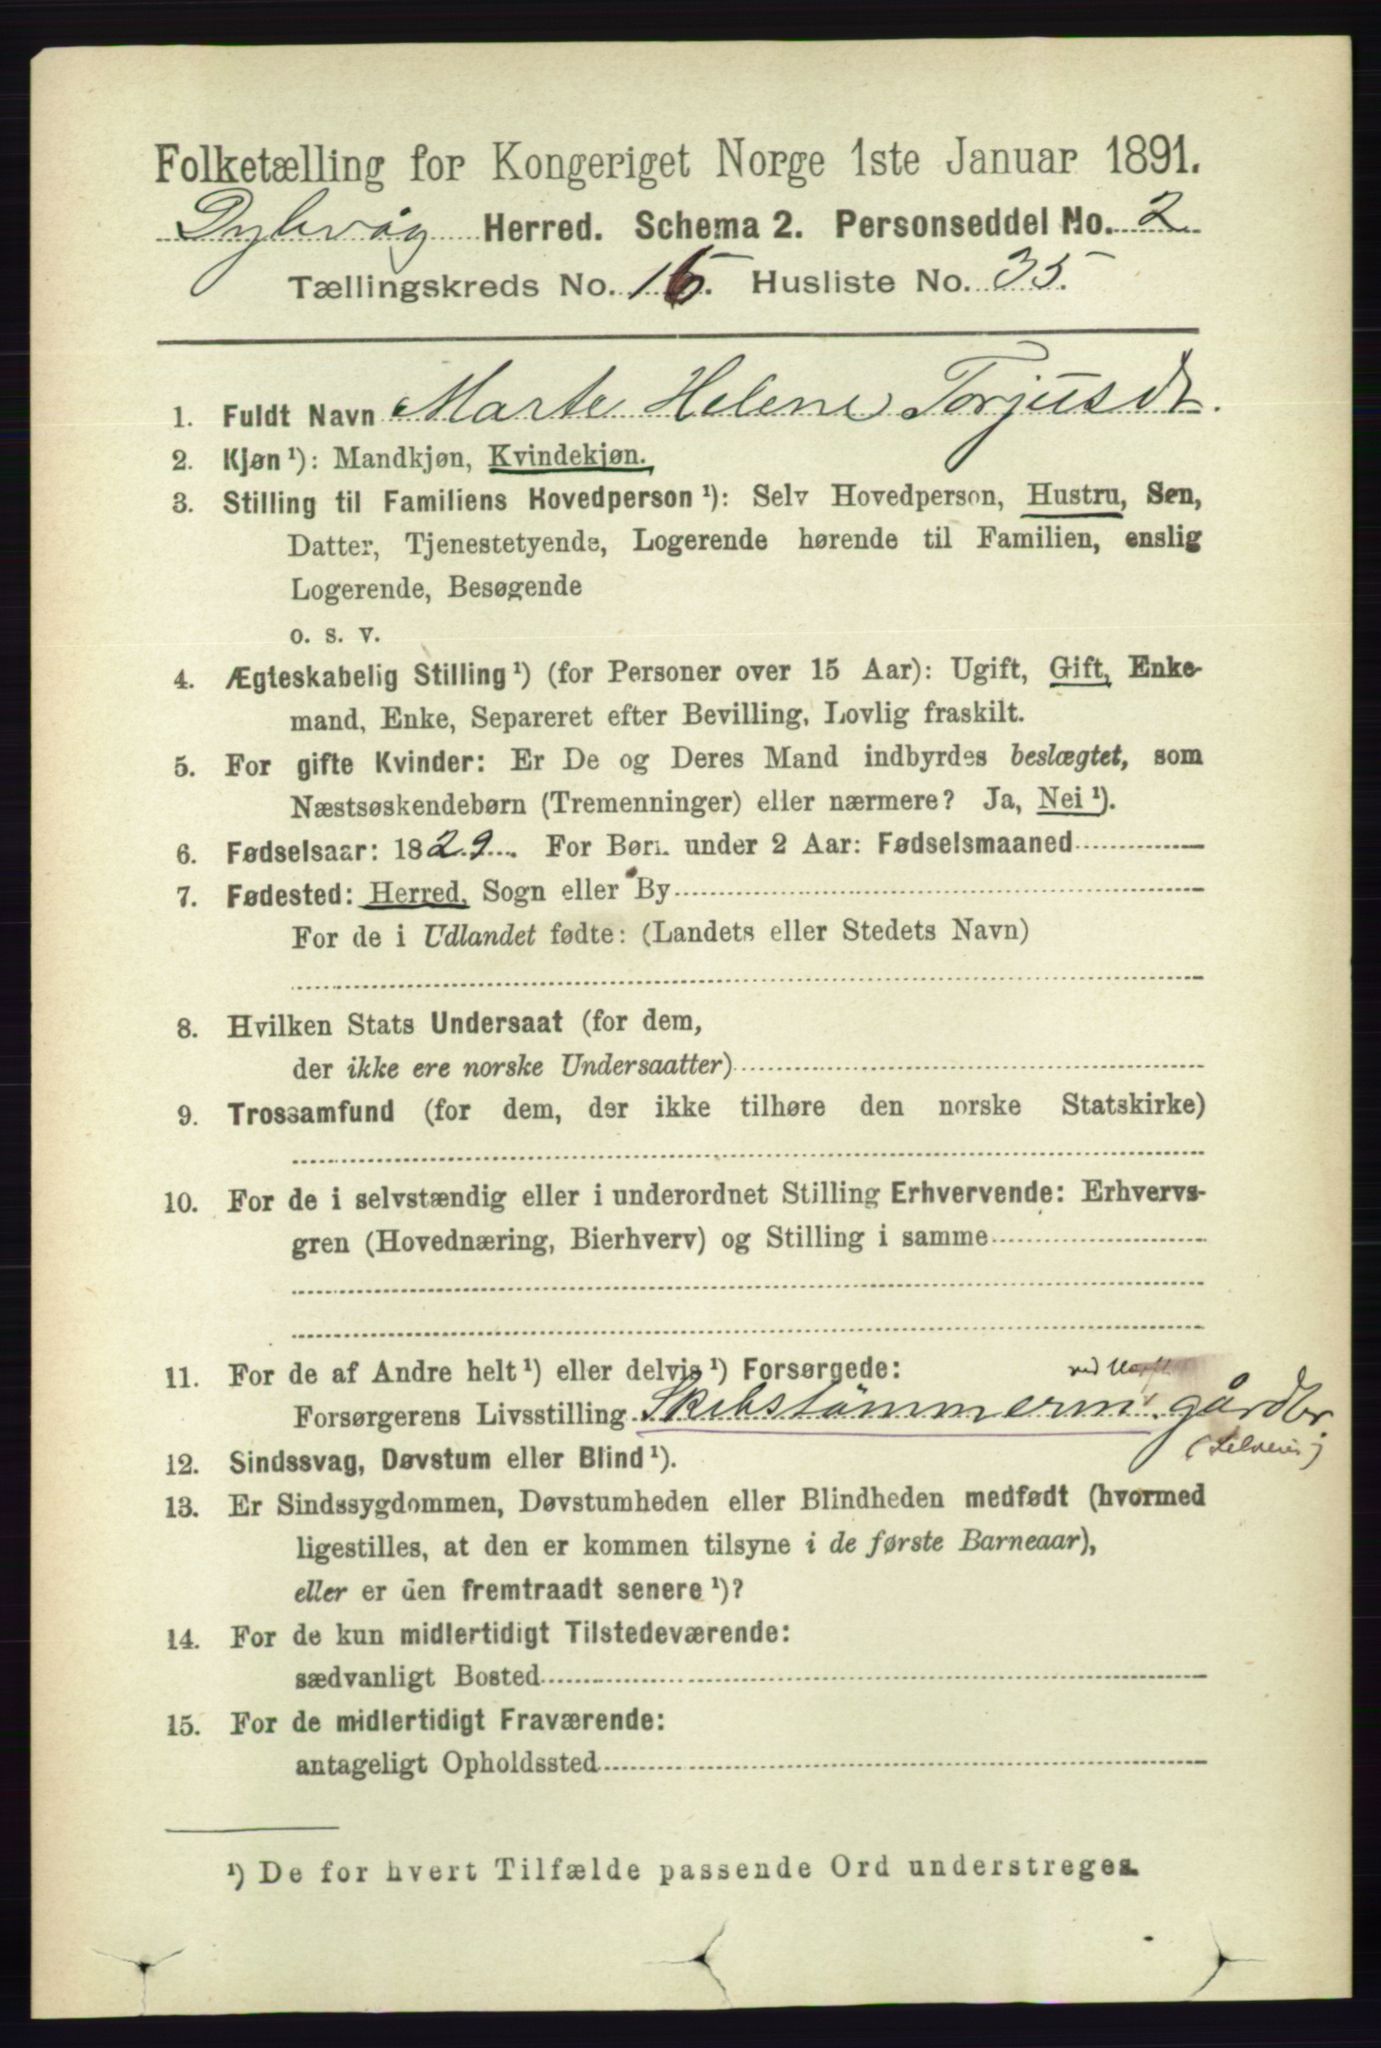 Folketælling for Kongeriget Norge 1ste Januar 1891.
Dybvåg Herred. Schema 2. Personseddel No. 2
Tællingskreds No. 16. Husliste No. 35.
1. Fuldt Navn Marte Helene Torjusdr.
2. Kjøn ¹): Mandkjøn, Kvindekjøn.
3. Stilling til Familiens Hovedperson ¹): Selv Hovedperson, Hustru, Søn,
Datter, Tjenestetyende, Logerende hørende til Familien, enslig
Logerende, Besøgende
o. s. v.
4. Ægteskabelig Stilling ¹) (for Personer over 15 Aar): Ugift, Gift, Enke-
mand, Enke, Separeret efter Bevilling, Lovlig fraskilt.
5. For gifte Kvinder: Er De og Deres Mand indbyrdes beslægtet, som
Næstsøskendebørn (Tremenninger) eller nærmere? Ja, Nei ¹).
6. Fødselsaar: 1829. For Børn under 2 Aar: Fødselsmaaned
7. Fødested: Herred, Sogn eller By
For de i Udlandet fødte: (Landets eller Stedets Navn)
8. Hvilken Stats Undersaat (for dem,
der ikke ere norske Undersaatter)
9. Trossamfund (for dem, der ikke tilhøre den norske Statskirke)
10. For de i selvstændig eller i underordnet Stilling Erhvervende: Erhvervs-
gren (Hovednæring, Bierhverv) og Stilling i samme
11. For de af Andre helt ¹) eller delvis ¹) Forsørgede:
ved
Forsørgerens Livsstilling Skibstømmerm. gårdbr
(Selveier)
12. Sindssvag, Døvstum eller Blind ¹).
13. Er Sindssygdommen, Døvstumheden eller Blindheden medfødt (hvormed
ligestilles, at den er kommen tilsyne i de første Barneaar),
eller er den fremtraadt senere ¹)?
14. For de kun midlertidigt Tilstedeværende:
sædvanligt Bosted
15. For de midlertidigt Fraværende:
antageligt Opholdssted
¹) De for hvert Tilfælde passende Ord understreges.